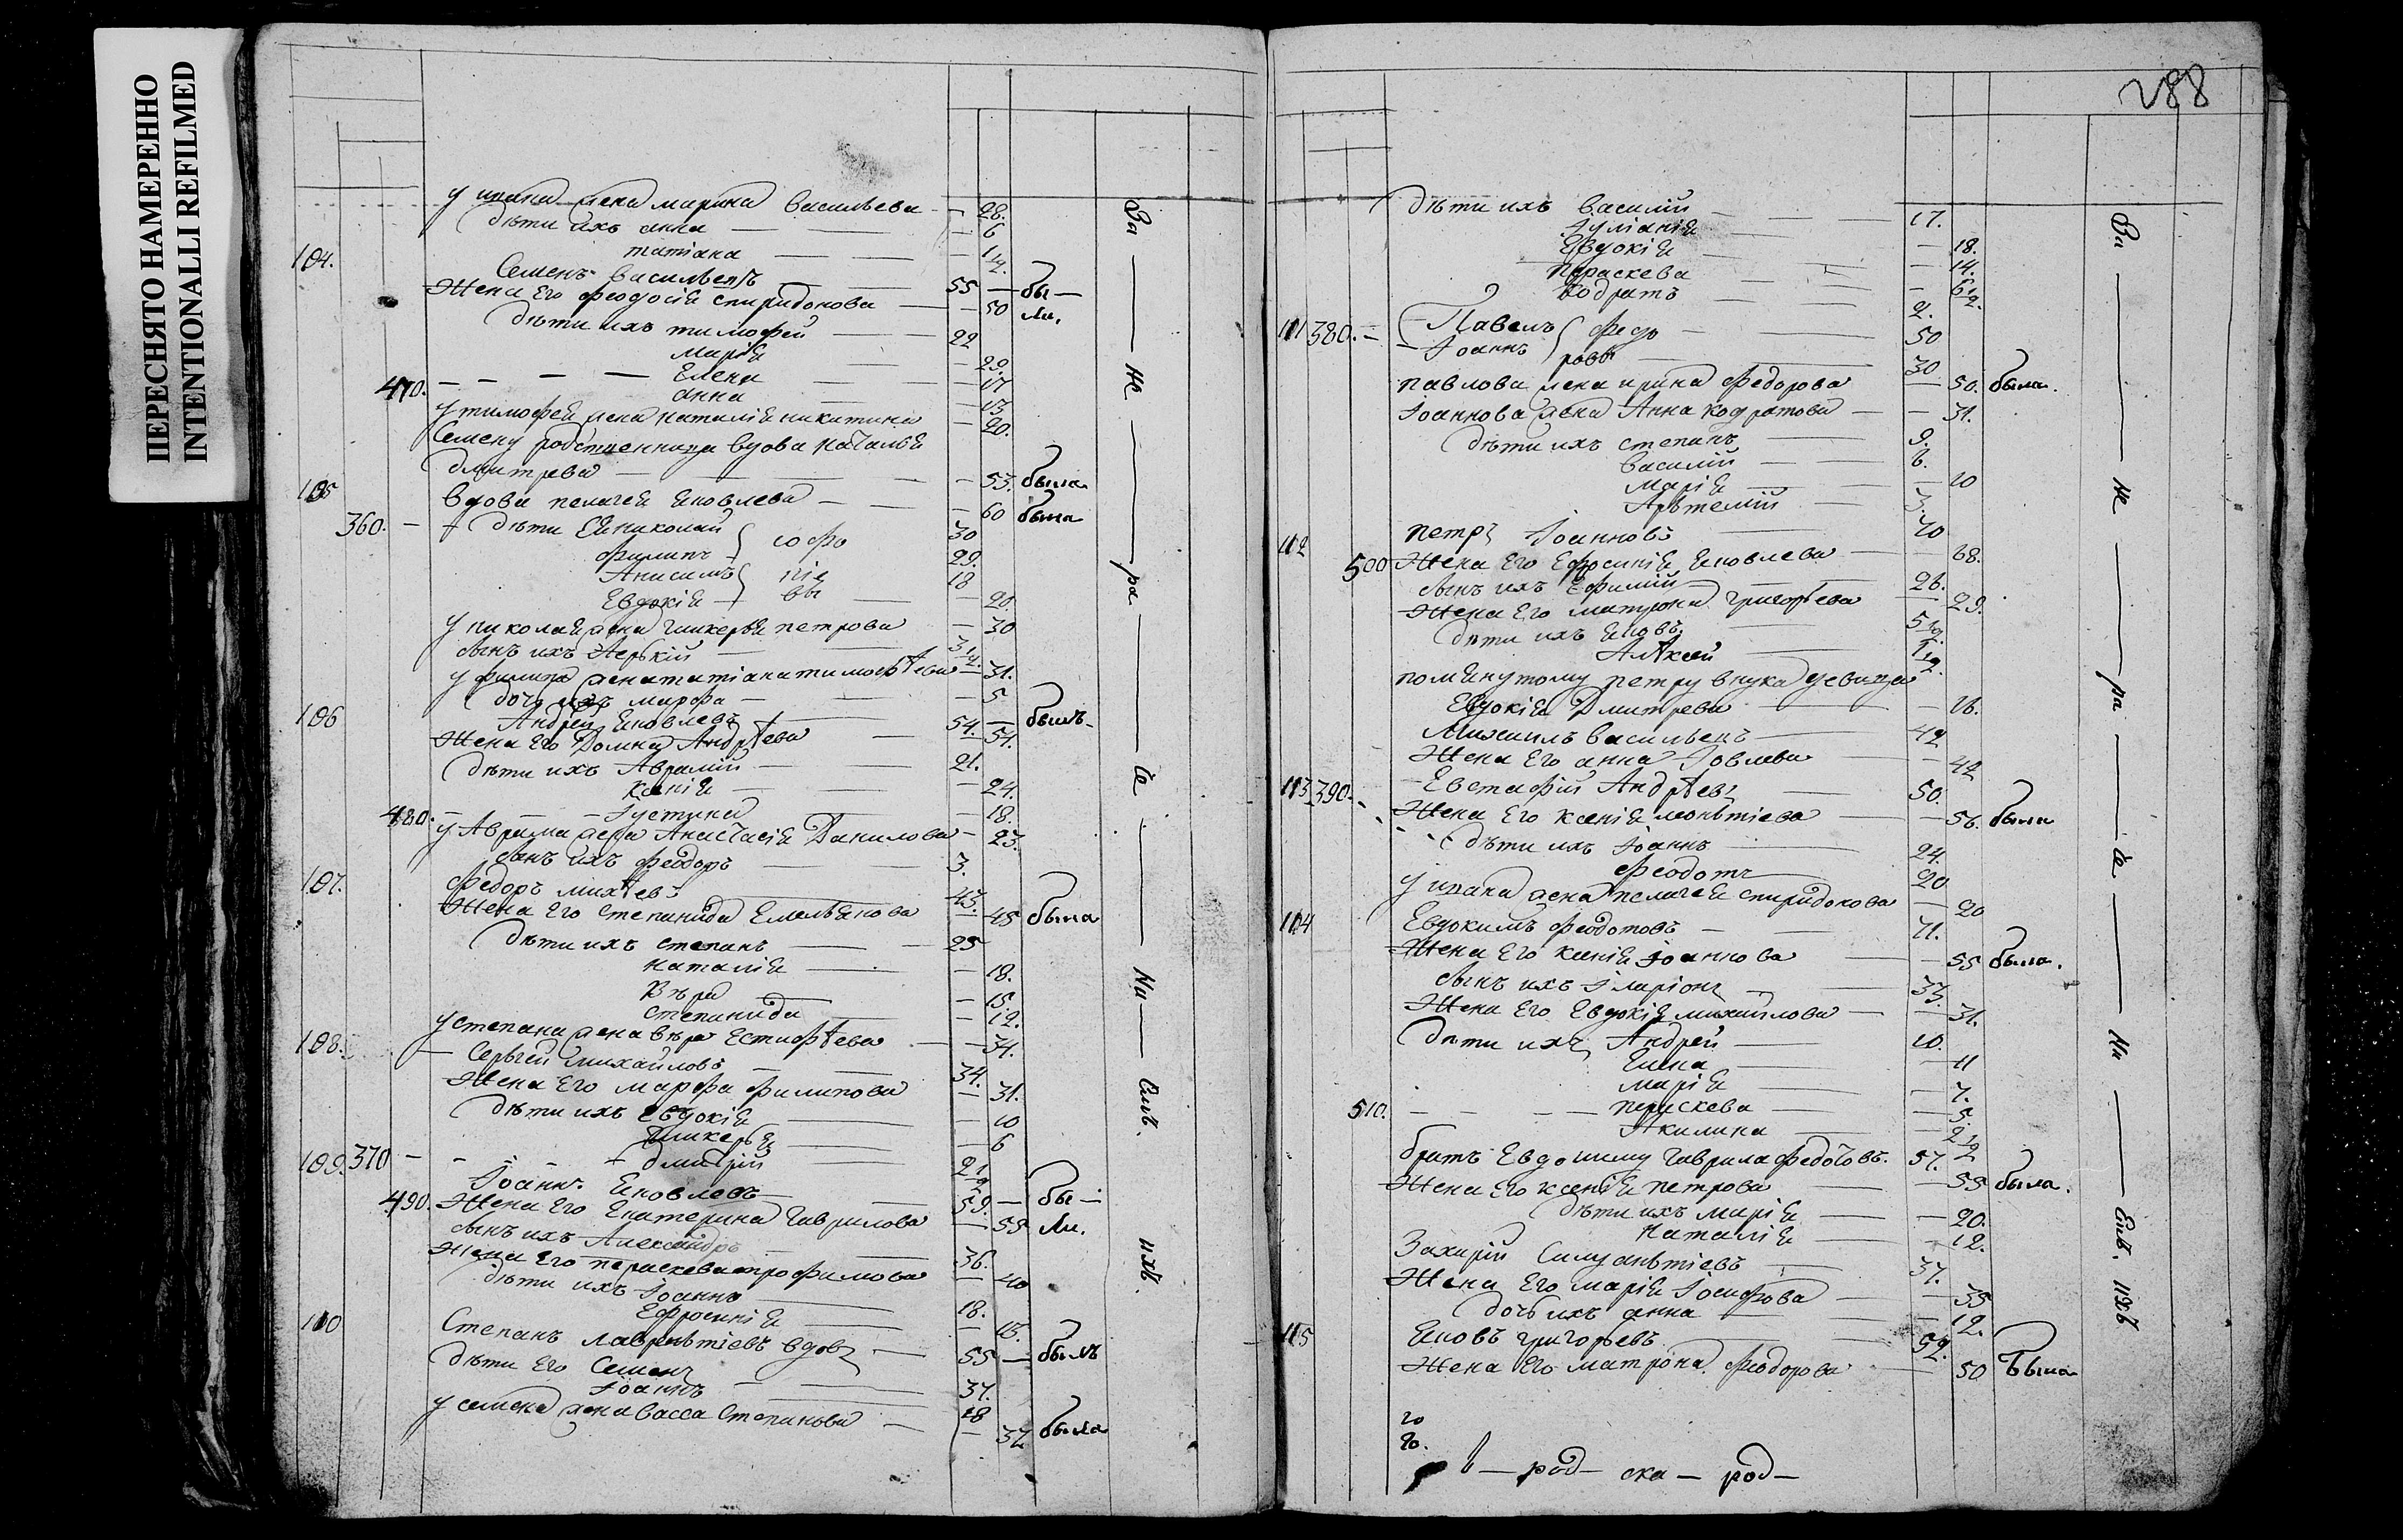 ПЕРЕСНЯТО НАМЕРЕННО
INTENTIONALLI REFILMED
у ивана жена марина васильева — 28.
дѣти ихъ анна — 6
татіана — 1 1/2.
104. Семенъ васильевъ 55 — бы—
Жена Его феодосія спиридонова — 50 ли.
дѣти ихъ тимофей 22
марія — 29.
470. Елена — 17
анна — 13
у тимофея жена наталія никитина — 20.
Семену родственница вдова наталья
дмитрева — 53. была
105 вдова пелагея яковлева — 60 была
360. — дѣти Ея николай 30
филипъ } софо 29.
Анисимъ } ніе 18
Евдокія } вы — 20.
у николая жена гликерья петрова — 30
сынъ ихъ 3 1/2.
у филипа жена татіана тимофѣева — 31.
дочь ихъ марфа — 5
106 Андрей яковлевъ 54. — былъ
Жена Его Домна Андрѣева — 51.
дѣти ихъ Аврамій 21.
ксенія — 24.
480. Іустина — 18.
у Аврама жена Анастасія Данилова — 23.
сынъ ихъ феодоръ 3.
107. федоръ михѣевъ 43.
Жена Его степанида Емельянова — 45 была
дѣти ихъ степанъ 25
наталія — 18.
Вѣра — 15.
степанида — 12.
у степана жена вѣра Естифѣева — 31.
108. Сергей михайловъ 34.
Жена Его марфа филипова — 31.
дѣти ихъ евдокія — 10
гликерья — 6
109. 370 — дмитрій 2 1/2
Іоаннъ яковлевъ 59. — бы—
490. Жена Его Екатерина гаврилова — 55 ли.
сынъ ихъ Александръ 36.
Жена его параскева трофимова — 40
дѣти ихъ Іоаннъ 18.
Ефросинія — 13.
110 Степанъ лаврентіевъ вдовъ 55 — былъ
дѣти Его Семенъ 37.
Іоаннъ 18
у семена жена васса степанова — 37 была
За — не — ра — че — ні — емъ. ихъ.
288
дѣти ихъ василій 17.
Іуліанія — 18.
Евдокія — 14.
параскева — 6 1/2.
кодратъ 2.
111 380. — Павелъ } федо 50
Іоаннъ } ровы 30
павлова жена ирина федорова — 50. была.
Іоаннова жена Анна кодратова — 31.
дѣти ихъ степанъ 9.
василій 6.
марія — 10
Артемій 3.
112 петръ Іоанновъ 70
500 Жена Его Ефросинія яковлева — 68.
сынъ ихъ Ефимій 26.
Жена Его матрона григорьева — 29.
дѣти ихъ яковъ 5 1/2.
Алѣксей 1 1/2
помянутому петру внука девица
Евдокія Дмитрева — 16.
михаилъ васильевъ 42
Жена Его анна Іовлева — 42
113 390. — Евстафій Андрѣевъ 50.
Жена Его ксенія леонтіева — 56. была
дѣти ихъ Іоаннъ 24.
феодотъ 20
у ивана жена пелагея спиридонова — 20
114 Евдокимъ феодотовъ 71.
Жена Его ксенія Іоаннова — 55 была.
сынъ ихъ Іларіонъ 33.
Жена Его Евдокія михайлова — 31.
дѣти ихъ Андрей 10.
Елена — 11
марія — 7.
510. — параскева — 5.
Акилина — 2 1/2
братъ Евдокиму гаврила федотовъ. 57.
Жена Его ксенія петрова — 55 была.
дѣти ихъ марія — 20.
наталія — 12.
Захарій 37.
Жена Его марія Іосифова — 35
дочь ихъ анна — 12.
115 яковъ григорьевъ 52.
Жена Его матрона феодорова — 50 была
За — не — ра — че — ні — емъ. ихъ
20
20.
— род — ска — род —